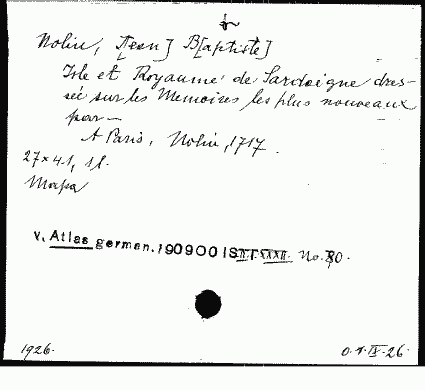 Nolin, J[ean] B[aptiste]
Isle et Royaume de Sardaigne dres-
sée sur les Memoires les plus nouveaux
par —
A Paris, Nolin, 1717.
27 x 41, 1 l.
Mapa
v. Atlas german. 190900 IS II.T.XXXII. No. 80.
1926. O. r. IX-26.